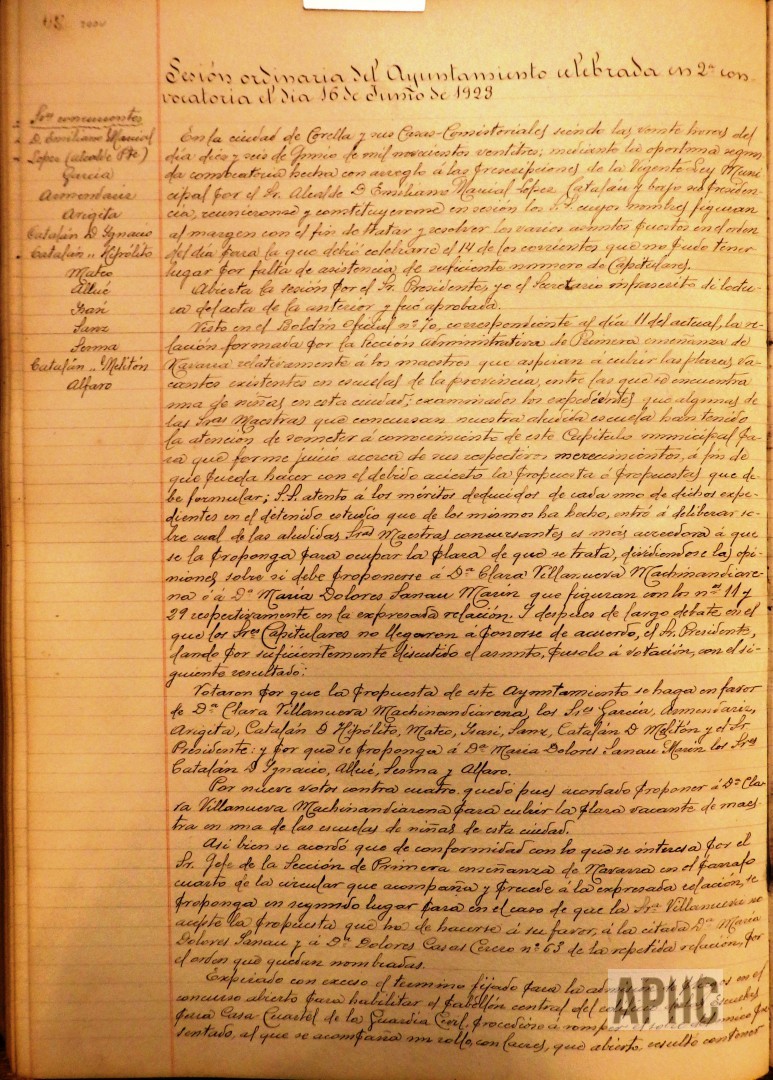 Sesión ordinaria del Ayuntamiento celebrada en 2ª con-
vocatoria el dia 16 de Junio de 1923
Sres concurrentes
D. Emiliano Marcial
Lopez (alcalde Pte)
Garcia
Armendariz
Arigita
Catalán D Ygnacio
Catalán " Hipólito
Mateo
Allué
Ysasi
Sanz
Sesma
Catalán " Melitón
Alfaro
En la ciudad de Corella y sus Casas-Consistoriales siendo las veinte horas del
dia diez y seis de Junio de mil novecientos ventitres; mediante la oportuna segun-
da convocatoria hecha con arreglo á las prescripciones de la Vigente Ley Muni-
cipal por el Sr. Alcalde D Emiliano Marcial Lopez Catalan y bajo su Presiden-
cia, reunieronse y constituyeronse en sesión los S.S. cuyos nombres figuran
al margen con el fin de tratar y resolver los varios asuntos puestos en orden
del dia para la que debió celebrarse el 14 de los corrientes que no pudo tener
lugar por falta de asistencia de suficiente número de Capitulares.
Abierta la sesión por el Sr. Presidente, yo el Secretario infrascrito di lectu-
ra del acta de la anterior y fué aprobada.
Visto en el Boletin Oficial nº 70, correspondiente al día 11 del actual, la re-
lación formada por la Sección Administrativa de Primera enseñanza de
Navarra relativamente á los maestros que aspiran á cubrir las plazas va-
cantes existentes en escuelas de la provincia, entre las que se encuentra
una de niñas en esta ciudad; examinados los expedientes que algunas de
las Sras Maestras que concursan nuestra aludida escuela han tenido
la atencion de someter á conocimiento de este Capitulo municipal pa-
ra que forme juicio acerca de sus respectivos merecimientos, á fin de
que pueda hacer con el debido acierto la propuesta ó propuestas que de-
be formular; S.S. atento á los méritos deducidos de cada uno de dichos expe-
dientes en el detenido estudio que de los mismos ha hecho, entró á deliberar so-
bre cual de las aludidas Sras Maestras concursantes es más acreedora á que
se la proponga para ocupar la plaza de que se trata, dividiendose las opi-
niones sobre si debe proponerse á Dª Clara Villanueva Machinandiare-
na ó á Dª Maria Dolores Sanau Marin que figuran con los nos 11 y
29 respectivamente en la expresada relación. Y despues de largo debate en el
que los Sres Capitulares no llegaron á ponerse de acuerdo, el Sr. Presidente,
dando por suficientemente discutido el asunto, púsolo á votación, con el si-
guiente resultado:
Votaron por que la propuesta de este Ayuntamiento se haga en favor
de Dª Clara Villanueva Machinandiarena, los Sres Garcia, Armendariz,
Arigita, Catalán D Hipólito, Mateo, Ysasi, Sanz, Catalán D Melitón y el Sr.
Presidente: y por que se proponga á Dª Maria Dolores Sanau Marin los Sres
Catalán D Ygnacio, Allué, Sesma y Alfaro.
Por nueve votos contra cuatro quedó pues acordado proponer á Dª Cla-
ra Villanueva Machinandiarena para cubrir la plaza vacante de maes-
tra en una de las escuelas de niñas de esta ciudad.
Asi bien se acordó que de conformidad con lo que se interesa por el
Sr. Jefe de la Sección de Primera enseñanza de Navarra en el párrafo
cuarto de la circular que acompaña y precede á la expresada relación, se
proponga en segundo lugar para en el caso de que la Sra Villanueva no
acepte la propuesta que ha de hacerse á su favor, á la citada Dª Maria
Dolores Sanau y á Dª Dolores Casas Cerco nº 63 de la repetida relación, por
el orden que quedan nombradas.
Expirado con exceso el termino fijado para la en el
concurso abierto para habilitar el pabellón central del Escuelas
para Casa Cuartel de la Guardia Civil, procedióse á romper pre-
sentado, al que se acompaña un rollo, con lacres, que abierto, resultó contener
APHC